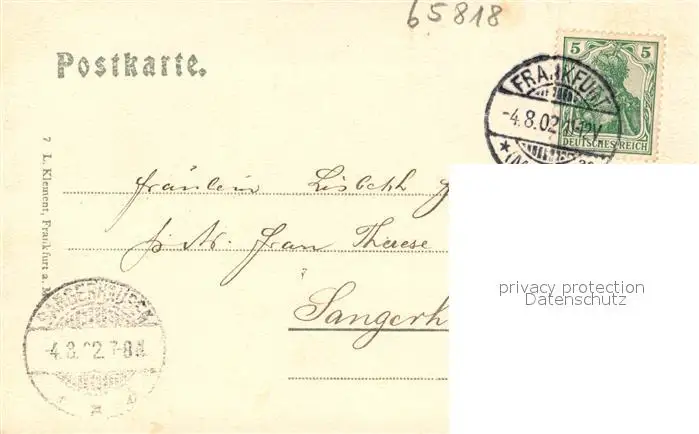 65818
Postkarte.
5 5
DEUTSCHES REICH
FRANKFURT
-4.8.02 11-12V.
7 L. Klement, Frankfurt a. M
Fräulein Lisbeth
Frau Therese
Sangerh
SANGERHAUSEN
-4.8.02.7-8N.
privacy protection
Datenschutz